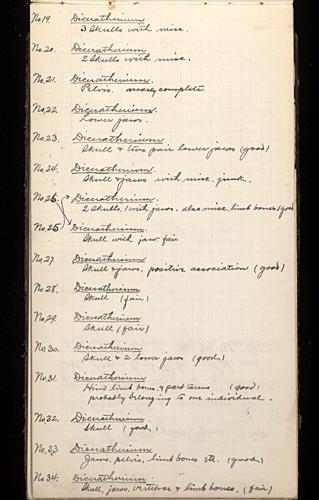 No.19. Diceratherium
3 skulls with misc.
No.20. Diceratherium
2 skulls with misc.
No.21. Diceratherium
Pelvis. nearly complete
No.22. Diceratherium
Lower jaws.
No.23. Diceratherium
Skull & two pair lower jaws (good)
No.24. Diceratherium
Skull & jaws with misc. junk.
No.26. Diceratherium
2 skulls, 1 with jaws. also misc. limb bones (good
No.25 Diceratherium
Skull with jaw fair
No.27. Diceratherium
Skull & jaws, positive association (good)
No.28. Diceratherium
Skull (fair)
No.29. Diceratherium
Skull (fair)
No.30. Diceratherium
Skull & 2 lower jaws (good)
No.31. Diceratherium
Hind limb bones, & part (good)
probably belonging to one individual.
No.32. Diceratherium
Skull (good)
No.33. Diceratherium
Jaws, pelvis, limb bones etc. (good)
No.34. Diceratherium
Skull, jaws, vertebrae & limb bones. (fair)